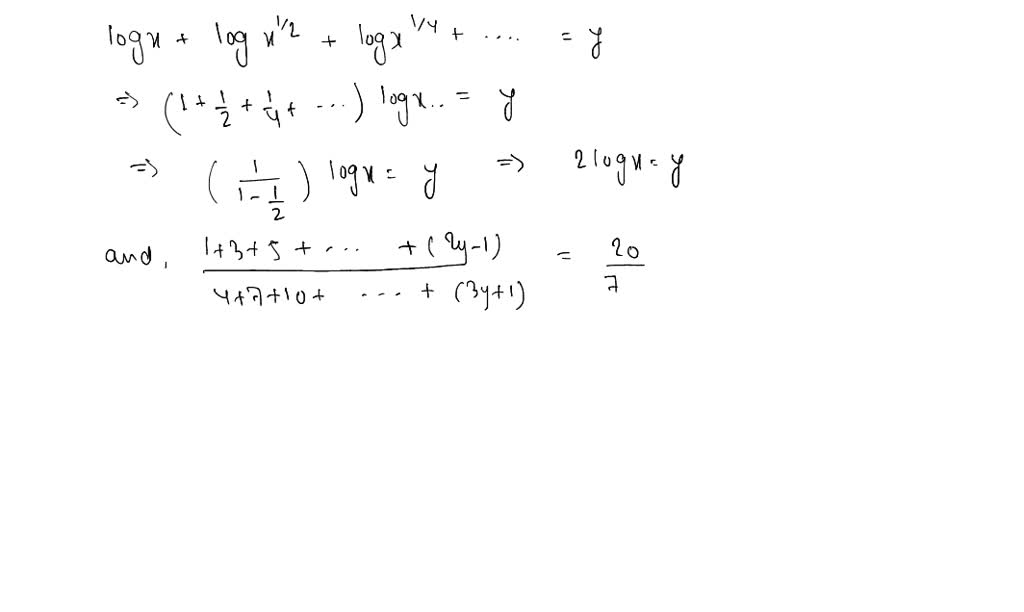 logx + log x^1/2 + logx^1/4 + .... = y
=> (1 + 1/2 + 1/4 + ...) logx.. = y
=> (1/(1 - 1/2)) logx = y => 2logx = y
and, (1+3+5+ ... +(2y-1))/(4+7+10+ ... + (3y+1)) = 20/7